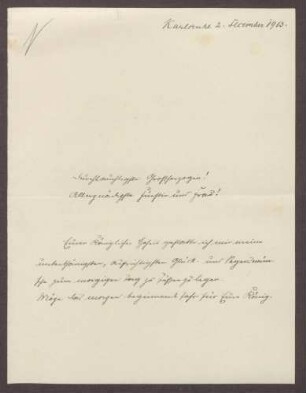 Karlsruhe 2. Dezember 1913.
Durchlauchtigste Großherzogin!
Allergnädigste Fürstin und Frau!
Eurer Königlichen Hoheit gestatte ich mir meine
unterthänigsten, aufrichtigsten Glück- und Segenswün-
sche zum morgigen Tag zu Füßen zu legen.
Möge das morgen beginnende Jahr für Eure König-